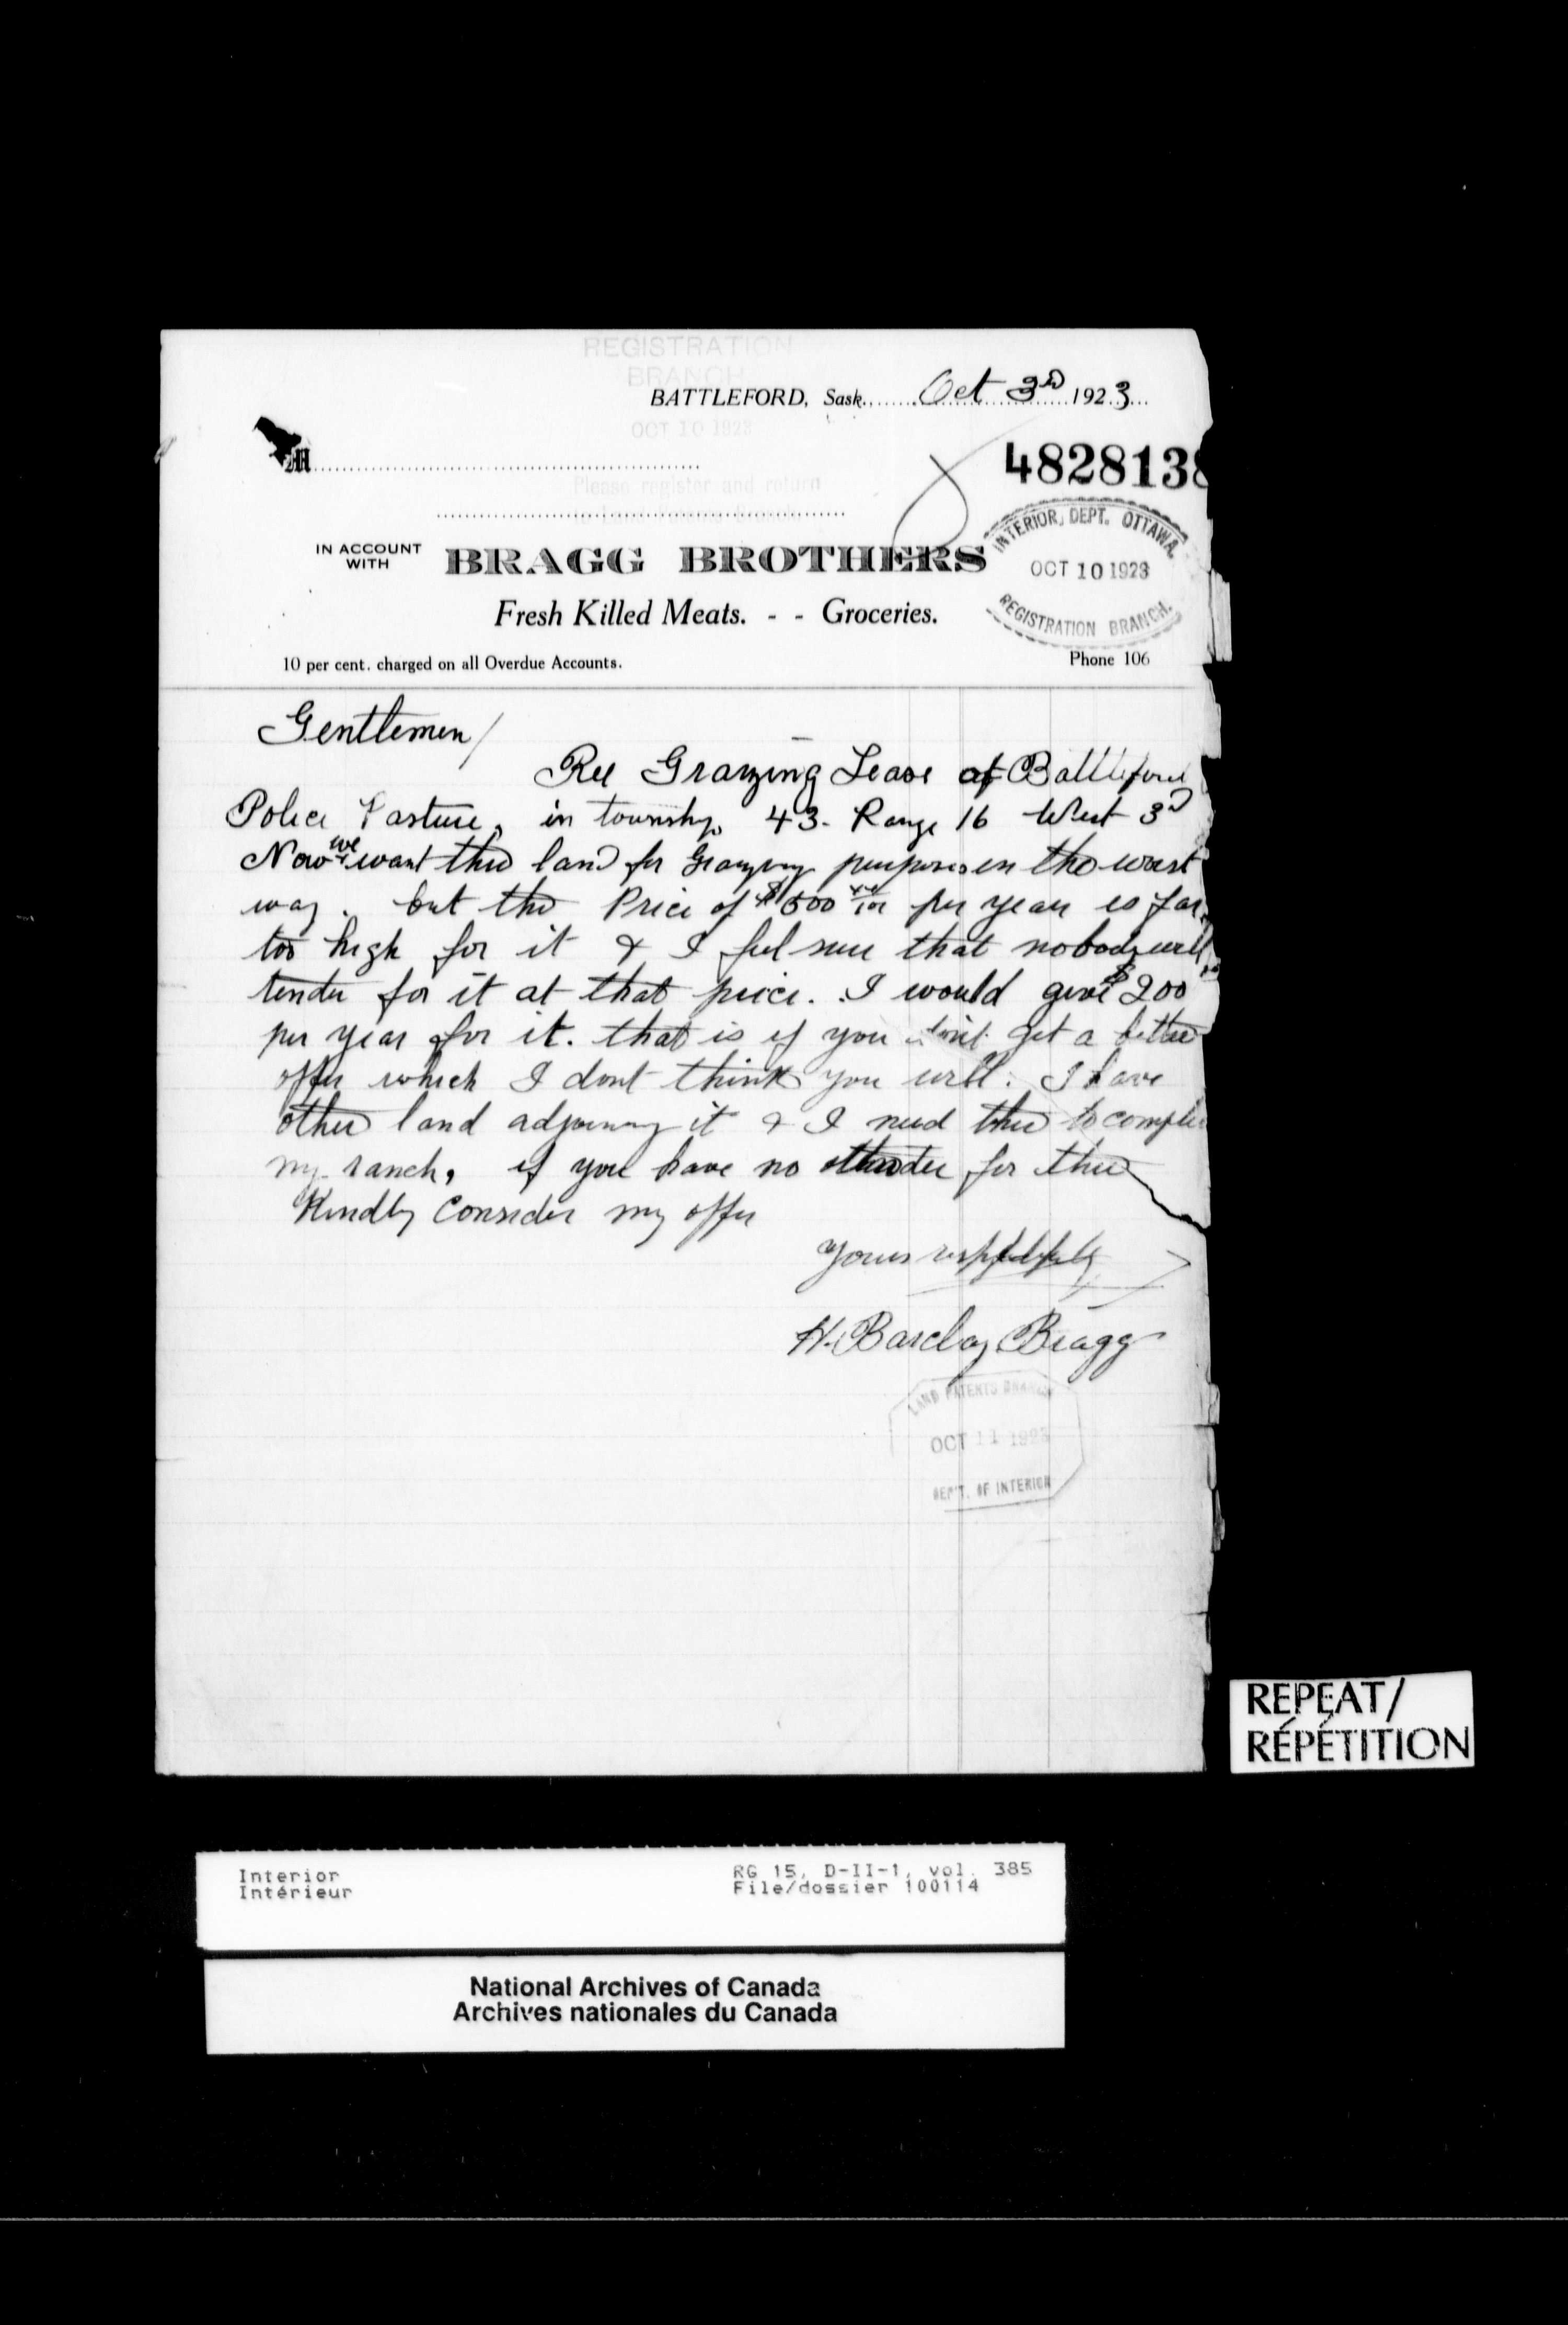 REGISTRATION
BRANCH
BATTLEFORD, Sask. Oct 3rd 1923
OCT 10 1923
M
4828138
Please register and return
INTERIOR DEPT. OTTAWA.
OCT 10 1923
REGISTRATION BRANCH.
IN ACCOUNT
WITH
BRAGG BROTHERS
Fresh Killed Meats. - - Groceries.
10 per cent. charged on all Overdue Accounts.
Phone 106
Gentlemen/
Ree Grazing Lease at Battleford
Police Pasture, in township 43. Range 16 West 3rd
Now we want this land for Grazing purposes in the worst
way. but the Price of $500 per year is far
too high for it & I feel sure that nobody will
tender for it at that price. I would give $200
per year for it. that is if you dont get a better
offer which I dont think you will. I have
other land adjoining it & I need this to complete
my ranch, if you have no tender for this
Kindly Consider my offer
Yours respectfully
H. Barclay Bragg
LAND PATENTS BRANCH
OCT 11 1923
DEP'T. OF INTERIOR
REPEAT/
RÉPÉTITION
Interior
Intérieur
RG 15, D-II-1, vol. 385
File/dossier 100114
National Archives of Canada
Archives nationales du Canada